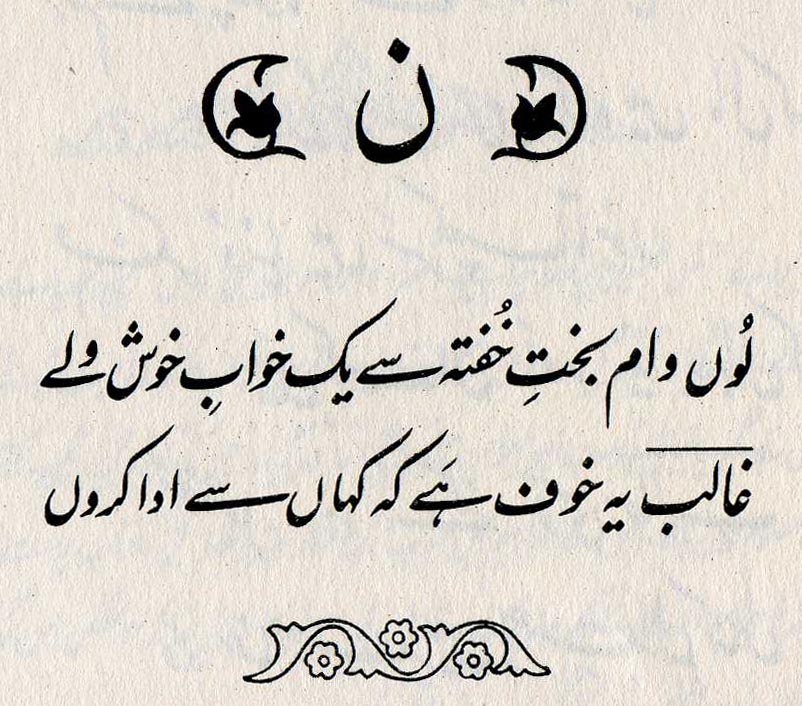 ن
لُوں وام بختِ خُفتہ سے یک خوابِ خوش ولے
غالب یہ خوف ہَے کہ کہاں سے ادا کروں